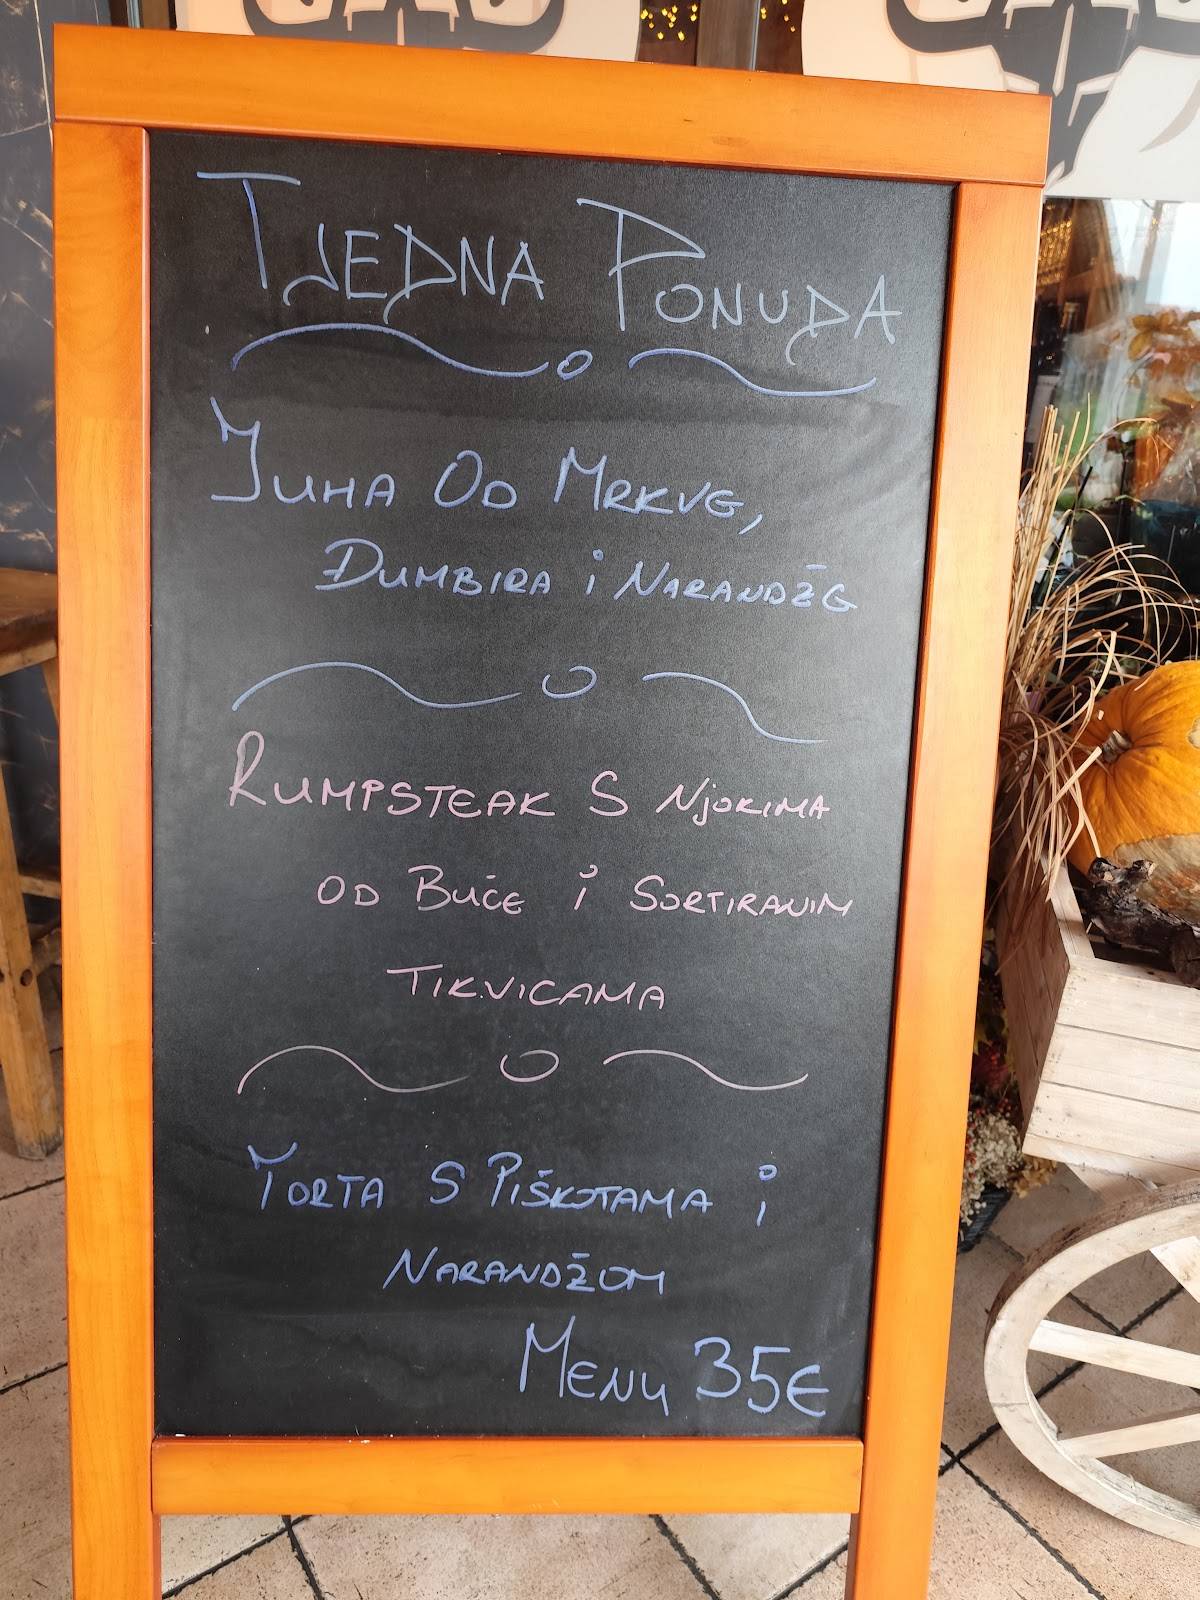 TJEDNA PONUDA
JUHA OD MRKVE,
ĐUMBIRA i NARANDŽE
RUMPSTEAK S NJOKIMA
OD BUČE i SORTIRANIM
TIKVICAMA
TORTA S PIŠKOTAMA i
NARANDŽOM
MENU 35€